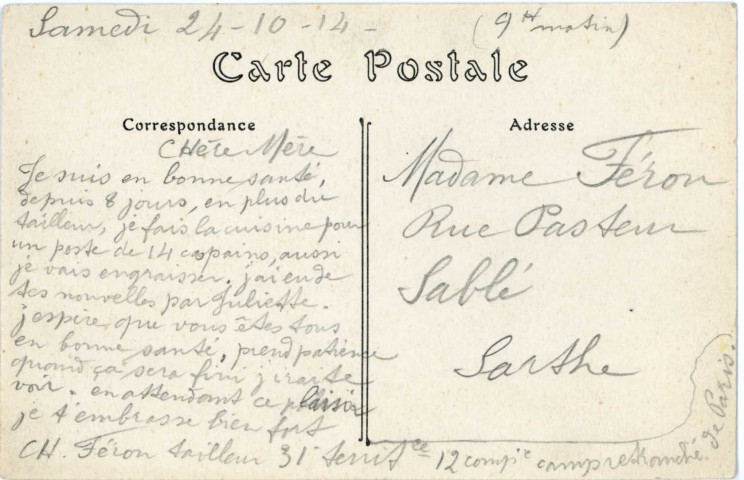 Samedi 24-10-14- (9H matin)
Carte Postale
Correspondance
CHère Mère
Je suis en bonne santé,
depuis 8 jours, en plus du
tailleur, je fais la cuisine pour
un poste de 14 copains, aussi
je vais engraisser. j'ai eu de
tes nouvelles par Juliette.
j'espire que vous êtes tous
en bonne santé, prend patience
quand ça sera fini j'irai te
voir. en attendant ce plaisir
je t'embrasse bien fort
CH. Féron tailleur 31 territce 12 compie camp retranché de Paris.
Adresse
Madame Féron
Rue Pasteur
Sablé
Sarthe